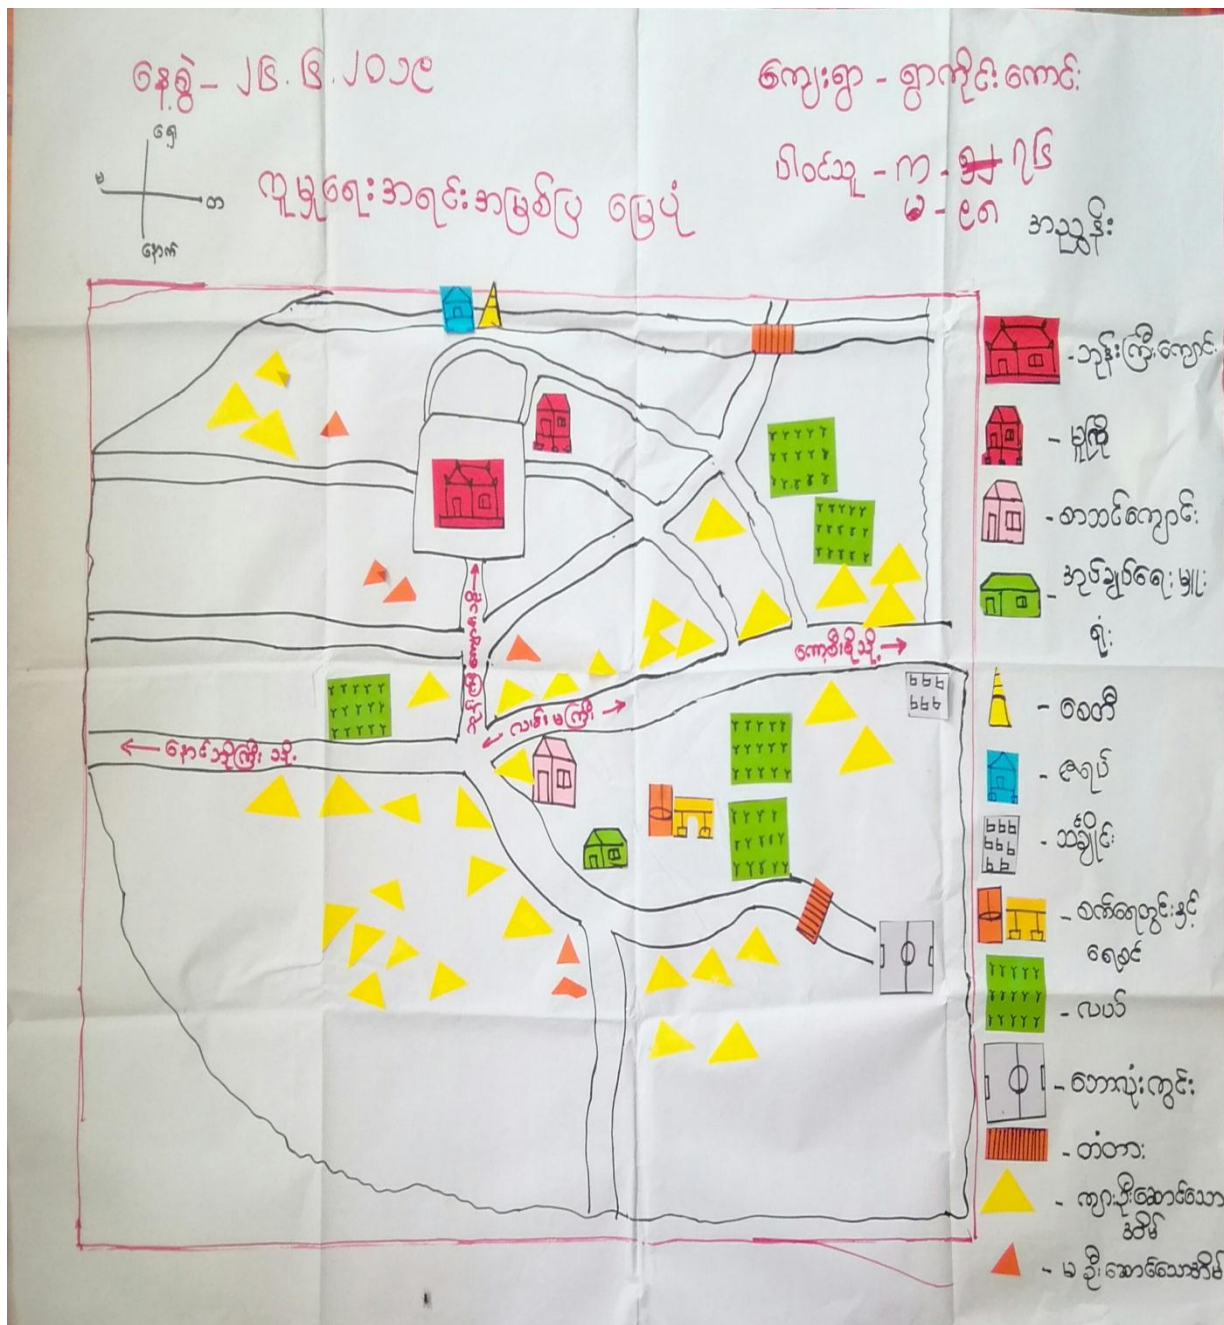 နေ့စွဲ - ၂၆.၆.၂၀၁၉
ကျေးရွာ - ရွာကိုင်းကောင်း
ပါဝင်သူ - က - ၇၆
မ - ၉၈
ရှေ့
မ
တ
နောက်
လူမှုရေးအရင်းအမြစ်ပြ မြေပုံ
အညွှန်း
- ဘုန်းကြီးကျောင်း
- မူကြို
- စာသင်ကျောင်း
- အုပ်ချုပ်ရေးမှူး
ရုံး
- စေတီ
- ဇရပ်
- သင်္ချိုင်း
- စက်ရေတွင်းနှင့်
ရေစင်
- လယ်
- ဘောလုံးကွင်း
- တံတား
- ကျားဦးဆောင်သော
အိမ်
- မ ဦးဆောင်သောအိမ်
လမ်းမကြီး